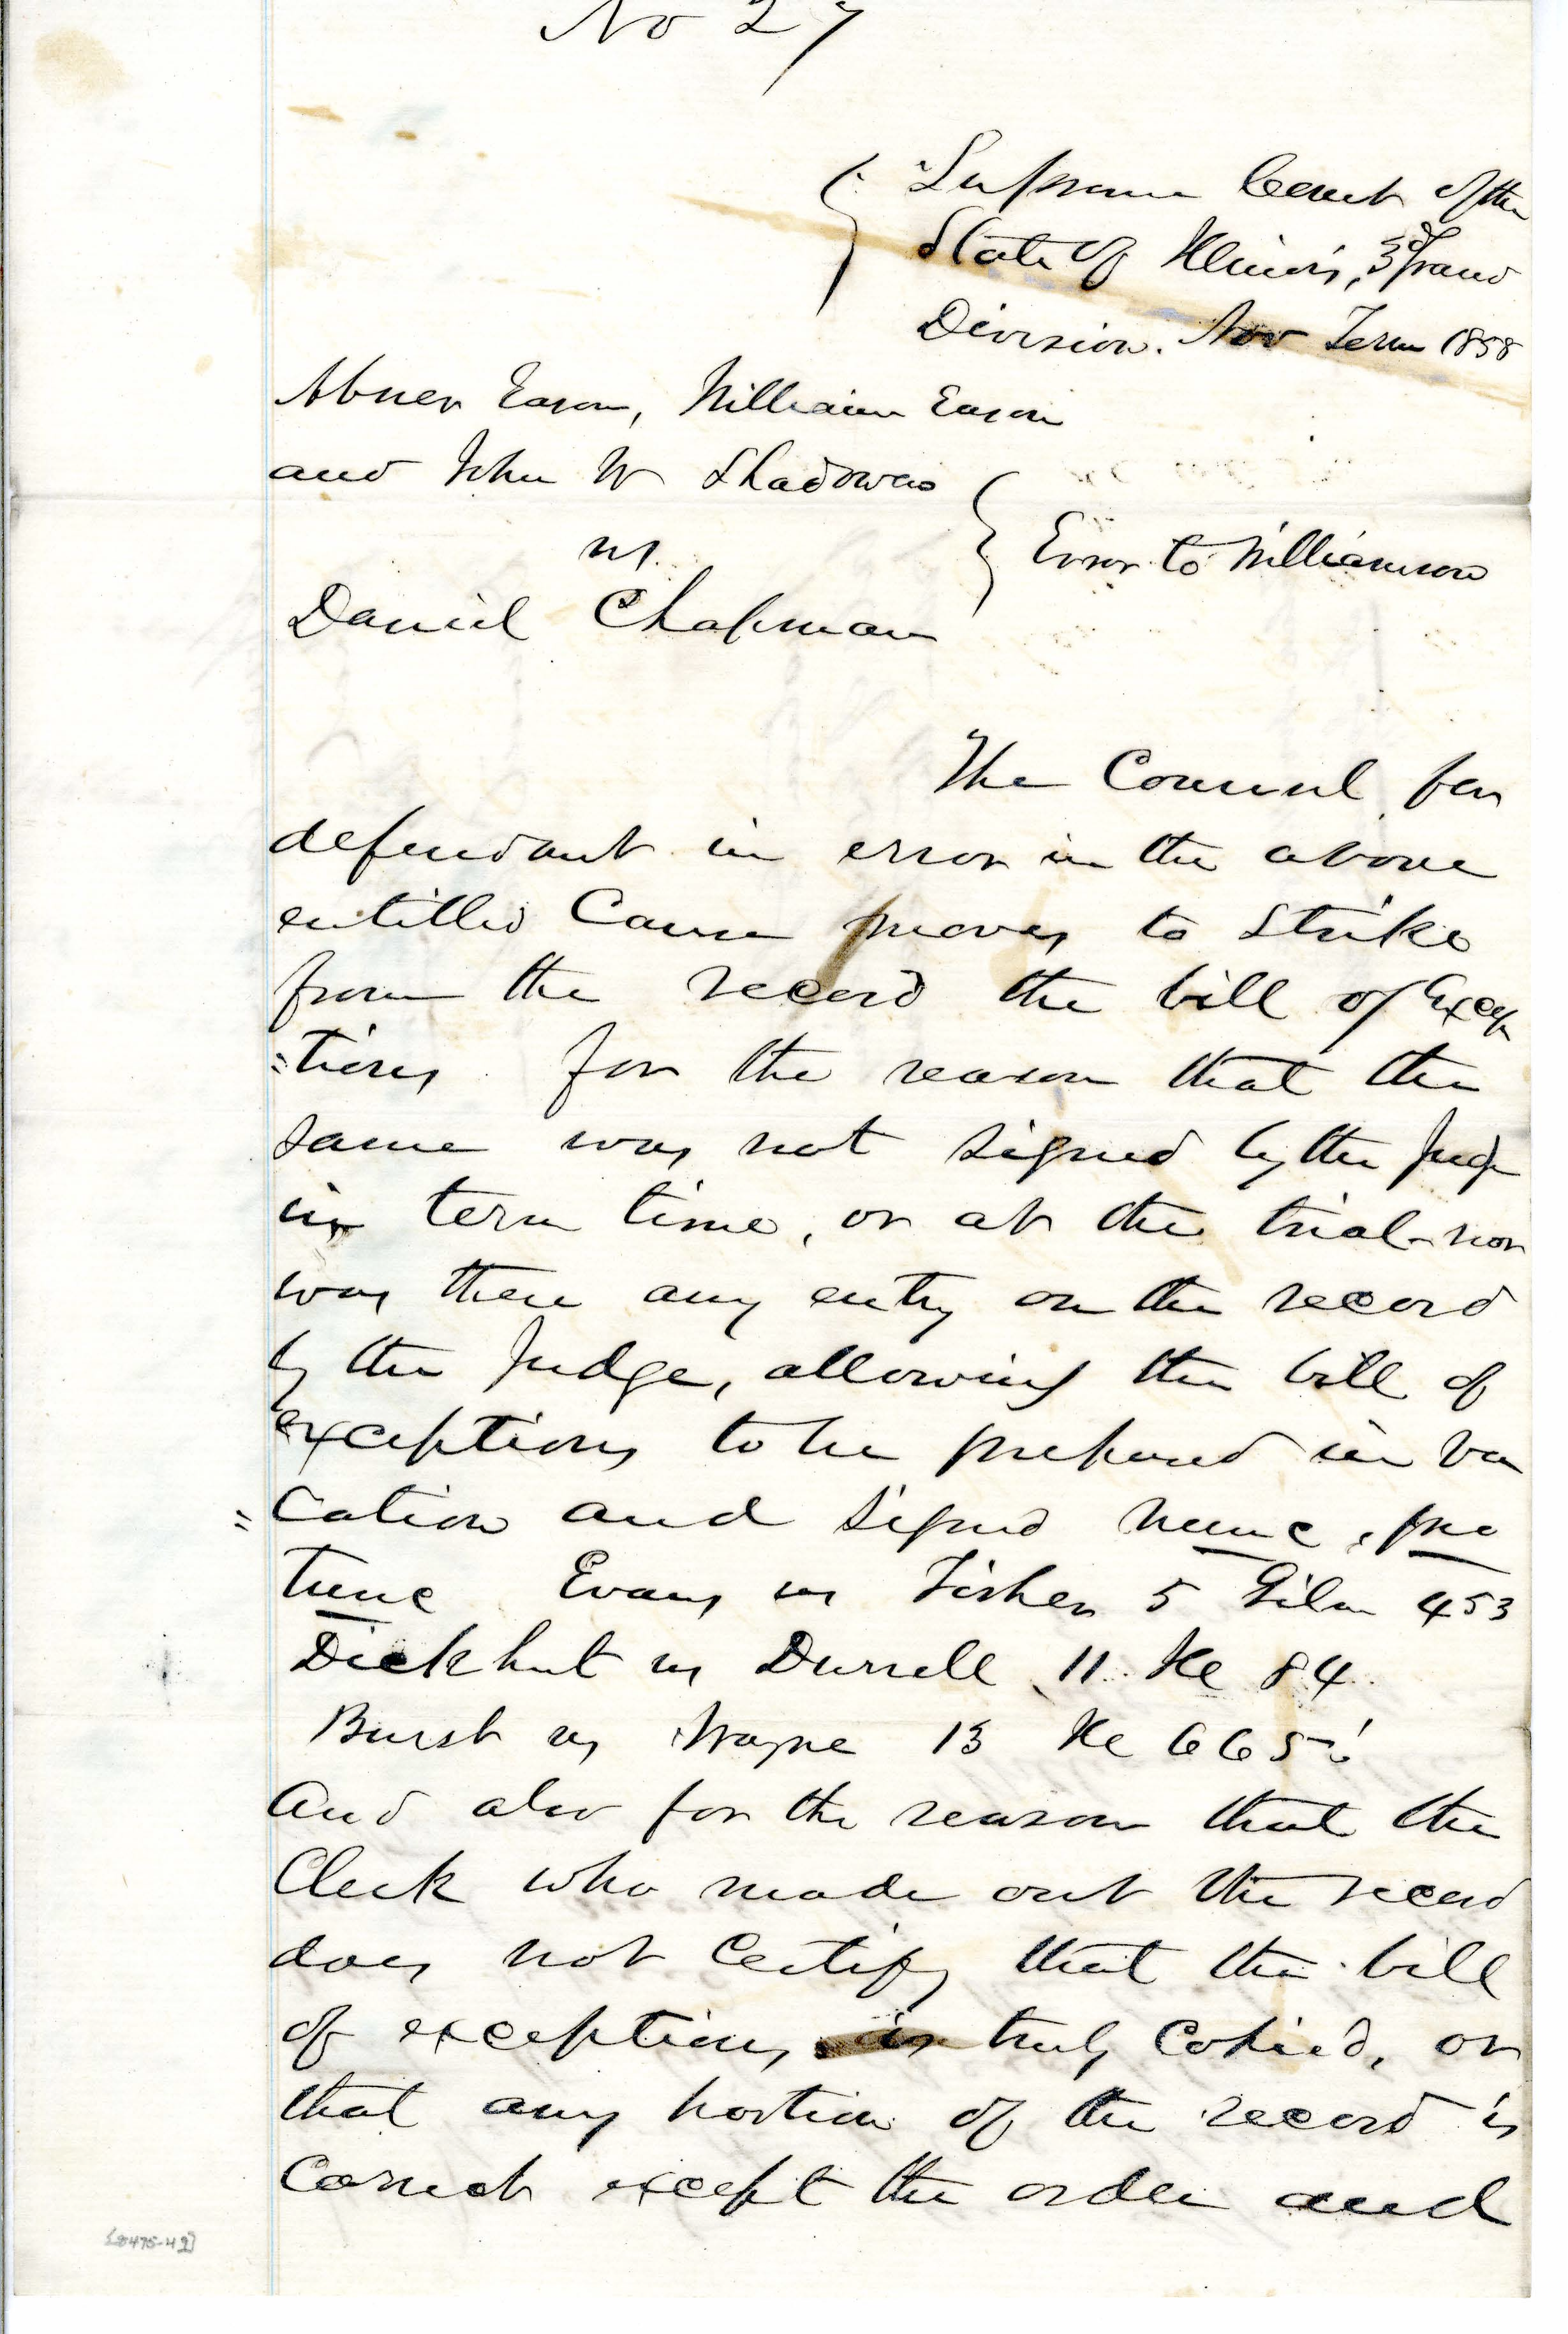 No 27
Supreme Court of the
State of Illinois, 3d Grand
Division. Nov Term 1858
Abner Eason, William Eason
and John W Shadowens
vs.
Error to Williamson
Daniel Chapman
The Counsel for
defendant in error in the above
entitled Cause moves to Strike
from the record the bill of Excep
=tions for the reason that the
same was not signed by the Judge
in term time, or at the trial - nor
was there any entry on the record
by the Judge, allowing the bill of
exceptions to be prepared in va
=cation and signed nunc, pro
tunc Evans vs Fisher 5 Gilm 453
Dickhut vs Durrell 11. Ill 84
Burst vs Wayne 13 Ill 665
And also for the reason that the
Clerk who made out the record
does not Certify that the bill
of exceptions is truly Copied, or
that any portion of the record is
Correct except the order and
[8475-49]